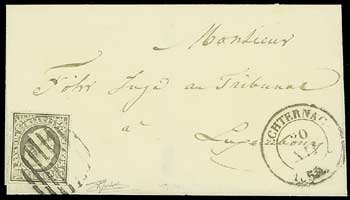 Monsieur
Föhr Juge au Tribunal
à
Luxembourg
ECHTERNAC
30